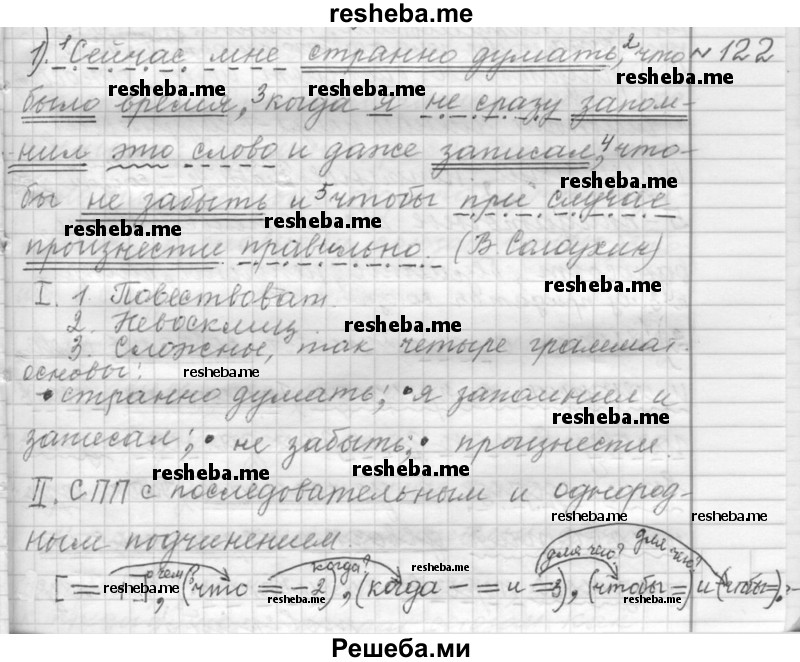 resheba.me
1). ¹Сейчас мне странно думать, ²что № 122
resheba.me resheba.me
было время, ³когда я не сразу запом-
нил это слово и даже записал, ⁴что-
resheba.me
бы не забыть и ⁵чтобы при случае
resheba.me resheba.me
произнести правильно. (В. Солоухин)
resheba.me
I. 1. Повествоват.
2. Невосклиц. resheba.me
3. Сложное, так четыре граммат.
основы: resheba.me
• странно думать; • я запомнил и
resheba.me
записал; • не забыть; • произнести.
resheba.me resheba.me
II. СПП с последовательным и однород-
resheba.me resheba.me
ным подчинением
о чём? когда? resheba.me для чего? для чего?
[= –1], (что = – 2), (когда – = и = 3), (чтобы =) и (чтобы =).
resheba.me resheba.me resheba.me
Решеба.ми